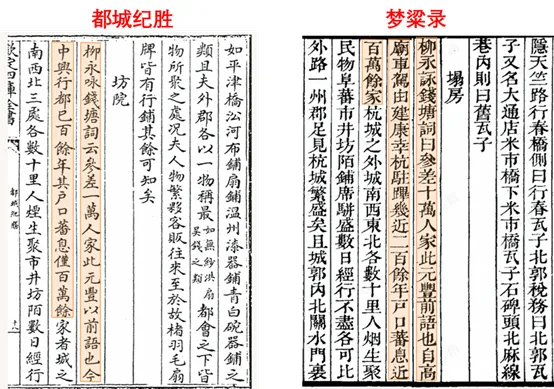 都城纪胜
如平津橋沿河布鋪扇鋪溫州漆器鋪青白碗器鋪之
類且夫外郡各以一物稱最如無紗洪扇吳錢之類都會之下皆
物所聚之處況夫人物繁夥客販往來至於故楮羽毛扇
牌皆有行鋪其餘可知矣
坊院
柳永詠錢塘詞云參差一萬人家此元豐以前語也今
中興行都已百餘年其戶口蕃息僅百萬餘家者城之
南西北三處各數十里人煙生聚市井坊陌數日經行
欽定四庫全書
都城紀勝
梦粱录
隠天竺路行春橋側曰行春瓦子北郭稅務曰北郭瓦
子又名大通店米市橋下米市橋瓦子石碑頭北麻線
巷內則曰舊瓦子
塌房
柳永詠錢塘詞曰參差十萬人家此元豐前語也自高
廟車駕由建康幸杭駐蹕幾近二百餘年戶口蕃息近
百萬餘家杭城之外城南西東北各數十里人烟生聚
民物阜蕃市井坊陌鋪席駢盛數日經行不盡各可比
外路一州郡足見杭城繁盛矣且城郭内北關水門裏